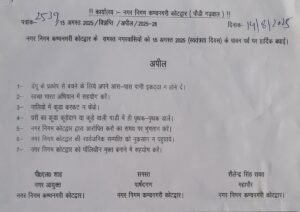 !! कार्यालय :- नगर निगम कण्वनगरी कोटद्वार ( पौड़ी गढ़वाल ) !!
पत्रांक- 2539 / 15 अगस्त 2025/विज्ञप्ति /अपील/2025-26 दिनांक- 14/8/2025
नगर निगम कण्वनगरी कोटद्वार के समस्त नगरवासियों को 15 अगस्त 2025 (स्वतंत्रता दिवस) के पावन पर्व पर हार्दिक बधाई।
अपील
1- डेंगू के प्रकोप से बचने के लिये अपने आस-पास पानी इकट्ठा न होने दें।
2- स्वच्छ भारत अभियान में सहयोग करें।
3- नालियों में कूड़ा करकट न फेंकें।
4- घरों का कूड़ा कूड़ेदान या कूड़े वाली गाड़ी में ही पृथक-पृथक डालें।
5- नगर निगम कोटद्वार द्वारा आरोपित करों का समय पर भुगतान करें।
6- नगर निगम कोटद्वार की सार्वजनिक सम्पत्ति को नुकसान न पहुचाये।
7- नगर निगम कोटद्वार को पॉलिथीन मुक्त बनाने में सहयोग करें।
पी०एल० शाह समस्त शैलेन्द्र सिंह रावत
नगर आयुक्त पार्षदगण महापौर
नगर निगम कण्वनगरी कोटद्वार। नगर निगम कण्वनगरी कोटद्वार। नगर निगम कण्वनगरी कोटद्वार।